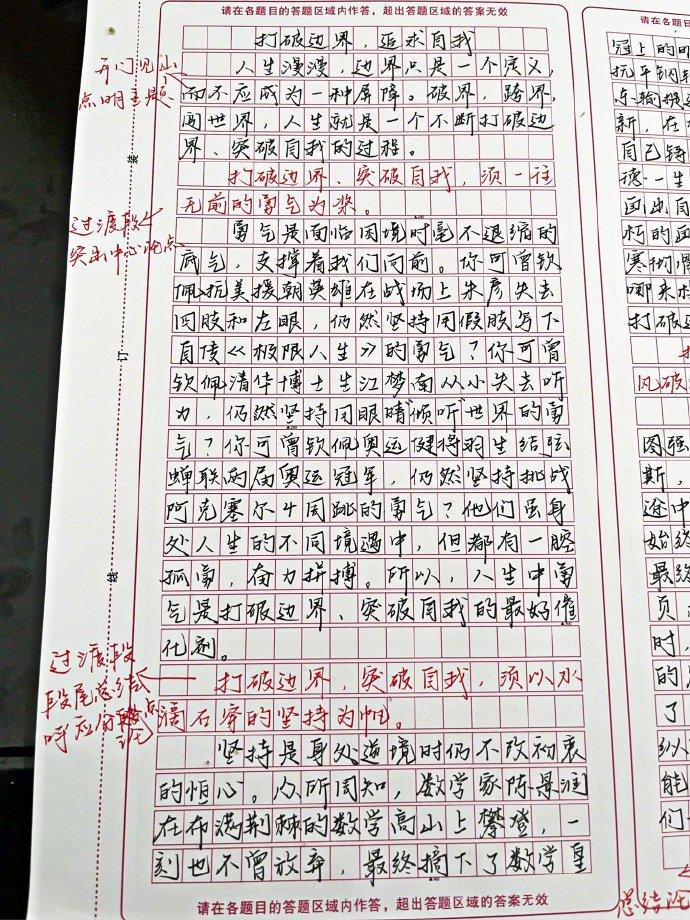 请在各题目的答题区域内作答,超出答题区域的答案无效
打破边界,追求自我
人生漫漫,边界只是一个定义,
而不应成为一种屏障。破界,跨界,
闯世界,人生就是一个不断打破边
界、突破自我的过程。
打破边界、突破自我,须一往
无前的勇气为桨。
勇气是面临困境时毫不退缩的
底气,支撑着我们向前。你可曾钦
佩抗美援朝英雄在战场上朱彦失去
四肢和左眼,仍然坚持用假肢写下
自传《极限人生》的勇气?你可曾
钦佩清华博士生江梦南从小失去听
力,仍然坚持用眼睛“倾听”世界的勇
气?你可曾钦佩奥运健将羽生结弦
蝉联两届奥运冠军,仍然坚持挑战
阿克塞尔4周跳的勇气?他们虽身
处人生的不同境遇中,但都有一腔
孤勇,奋力拼搏。所以,人生中勇
气是打破边界、突破自我的最好催
化剂。
打破边界,突破自我,须以水
滴石穿的坚持为帆。
坚持是身处逆境时仍不改初衷
的恒心。众所周知,数学家陈景润
在布满荆棘的数学高山上攀登,一
刻也不曾放弃,最终摘下了数学皇
请在各题目的答题区域内作答,超出答题区域的答案无效
开门见山
点明主题
过渡段
突出中心论点
过渡段
段尾总结
呼应分论点
装
订
线
请在各题目
冠上的明
抗平
东输
新,在
自己
德一生
画出自
朽的画
寒彻骨
哪来
打破
风破
图强
斯,
途中
始终
最终
页
时,
的
了
纵
能
们
总结论